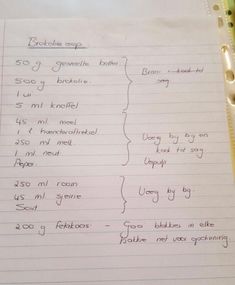 Brokolie sop
50 g gesmelte botter
500 g brokolie
1 ui
5 ml knoffel
Braai kook tot
sag
45 ml meel
1 l hoenderaftreksel
250 ml melk
1 ml neut
Peper
Voeg by bg en
kook tot sag
Verpulp
250 ml room
45 ml sjerrie
Sout
Voeg by bg.
200 g fetakaas - Gooi blokkies in elke
bakkie net voor opskeining